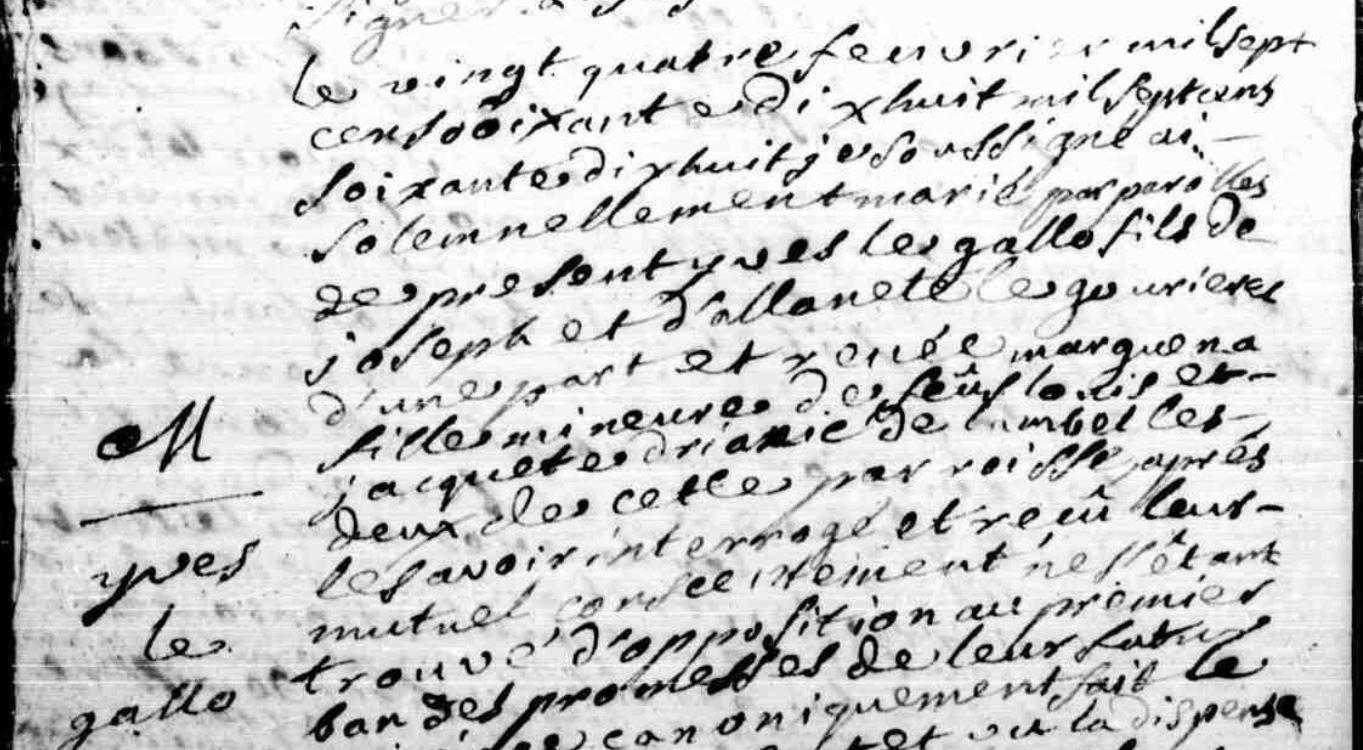 signer
le vingt quatre feuvrier mil sept
cen sooixante dixhuit mil sept cens
soixante dixhuit je soussigné ai
solemnellement marié par parolles
de present yves le gallo fils de
joseph et d'allanete le gourieres
d'une part et renée marguena
fille mineure de feûs louis et
jacquete drianic de lambel les
deux de cette parroisse, après
les avoir interrogé et reçû leur
mutuel consentement ne s'étant
trouvé d'opposition au premier
ban des promesses de leur futur
canoniquement fait le
et vu la dispense
M
yves
le
gallo